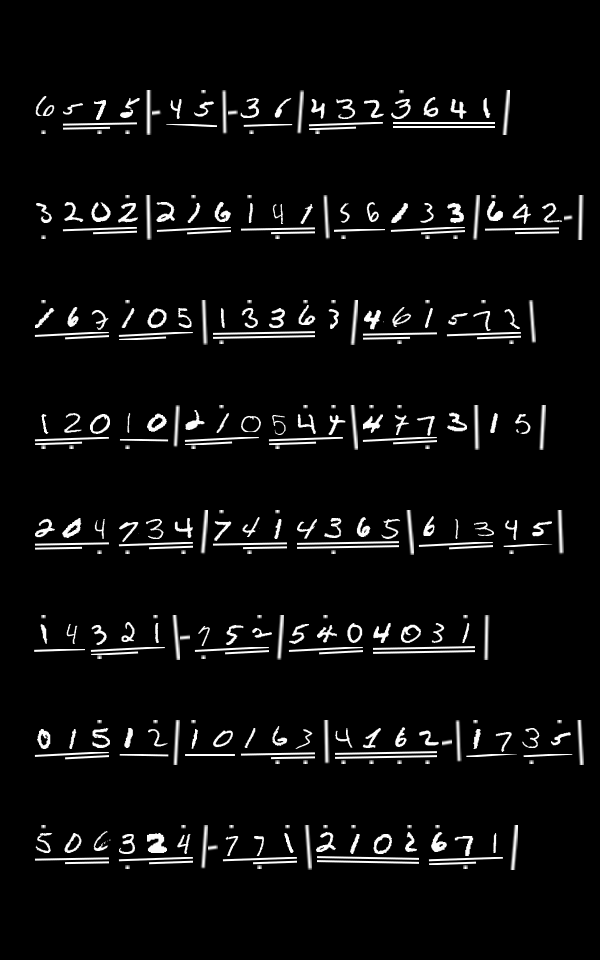 6 5 7 5 | - 4 5 | - 3 6 | 4 3 2 3 6 4 1 |
3 2 0 2 | 2 1 6 1 4 1 | 5 6 1 3 3 | 6 4 2 - |
1 6 2 1 0 5 | 1 3 3 6 3 | 4 6 1 5 7 2 |
1 2 0 1 0 | 2 1 0 5 4 4 | 4 7 7 3 | 1 5 |
2 0 4 7 3 4 | 7 4 1 4 3 6 5 | 6 1 3 4 5 |
1 4 3 2 1 | - 7 5 2 | 5 4 0 4 0 3 1 |
0 1 5 1 2 | 1 0 1 6 3 | 4 1 6 2 - | 1 7 3 5 |
5 0 6 3 2 4 | - 7 7 1 | 2 1 0 2 6 7 1 |